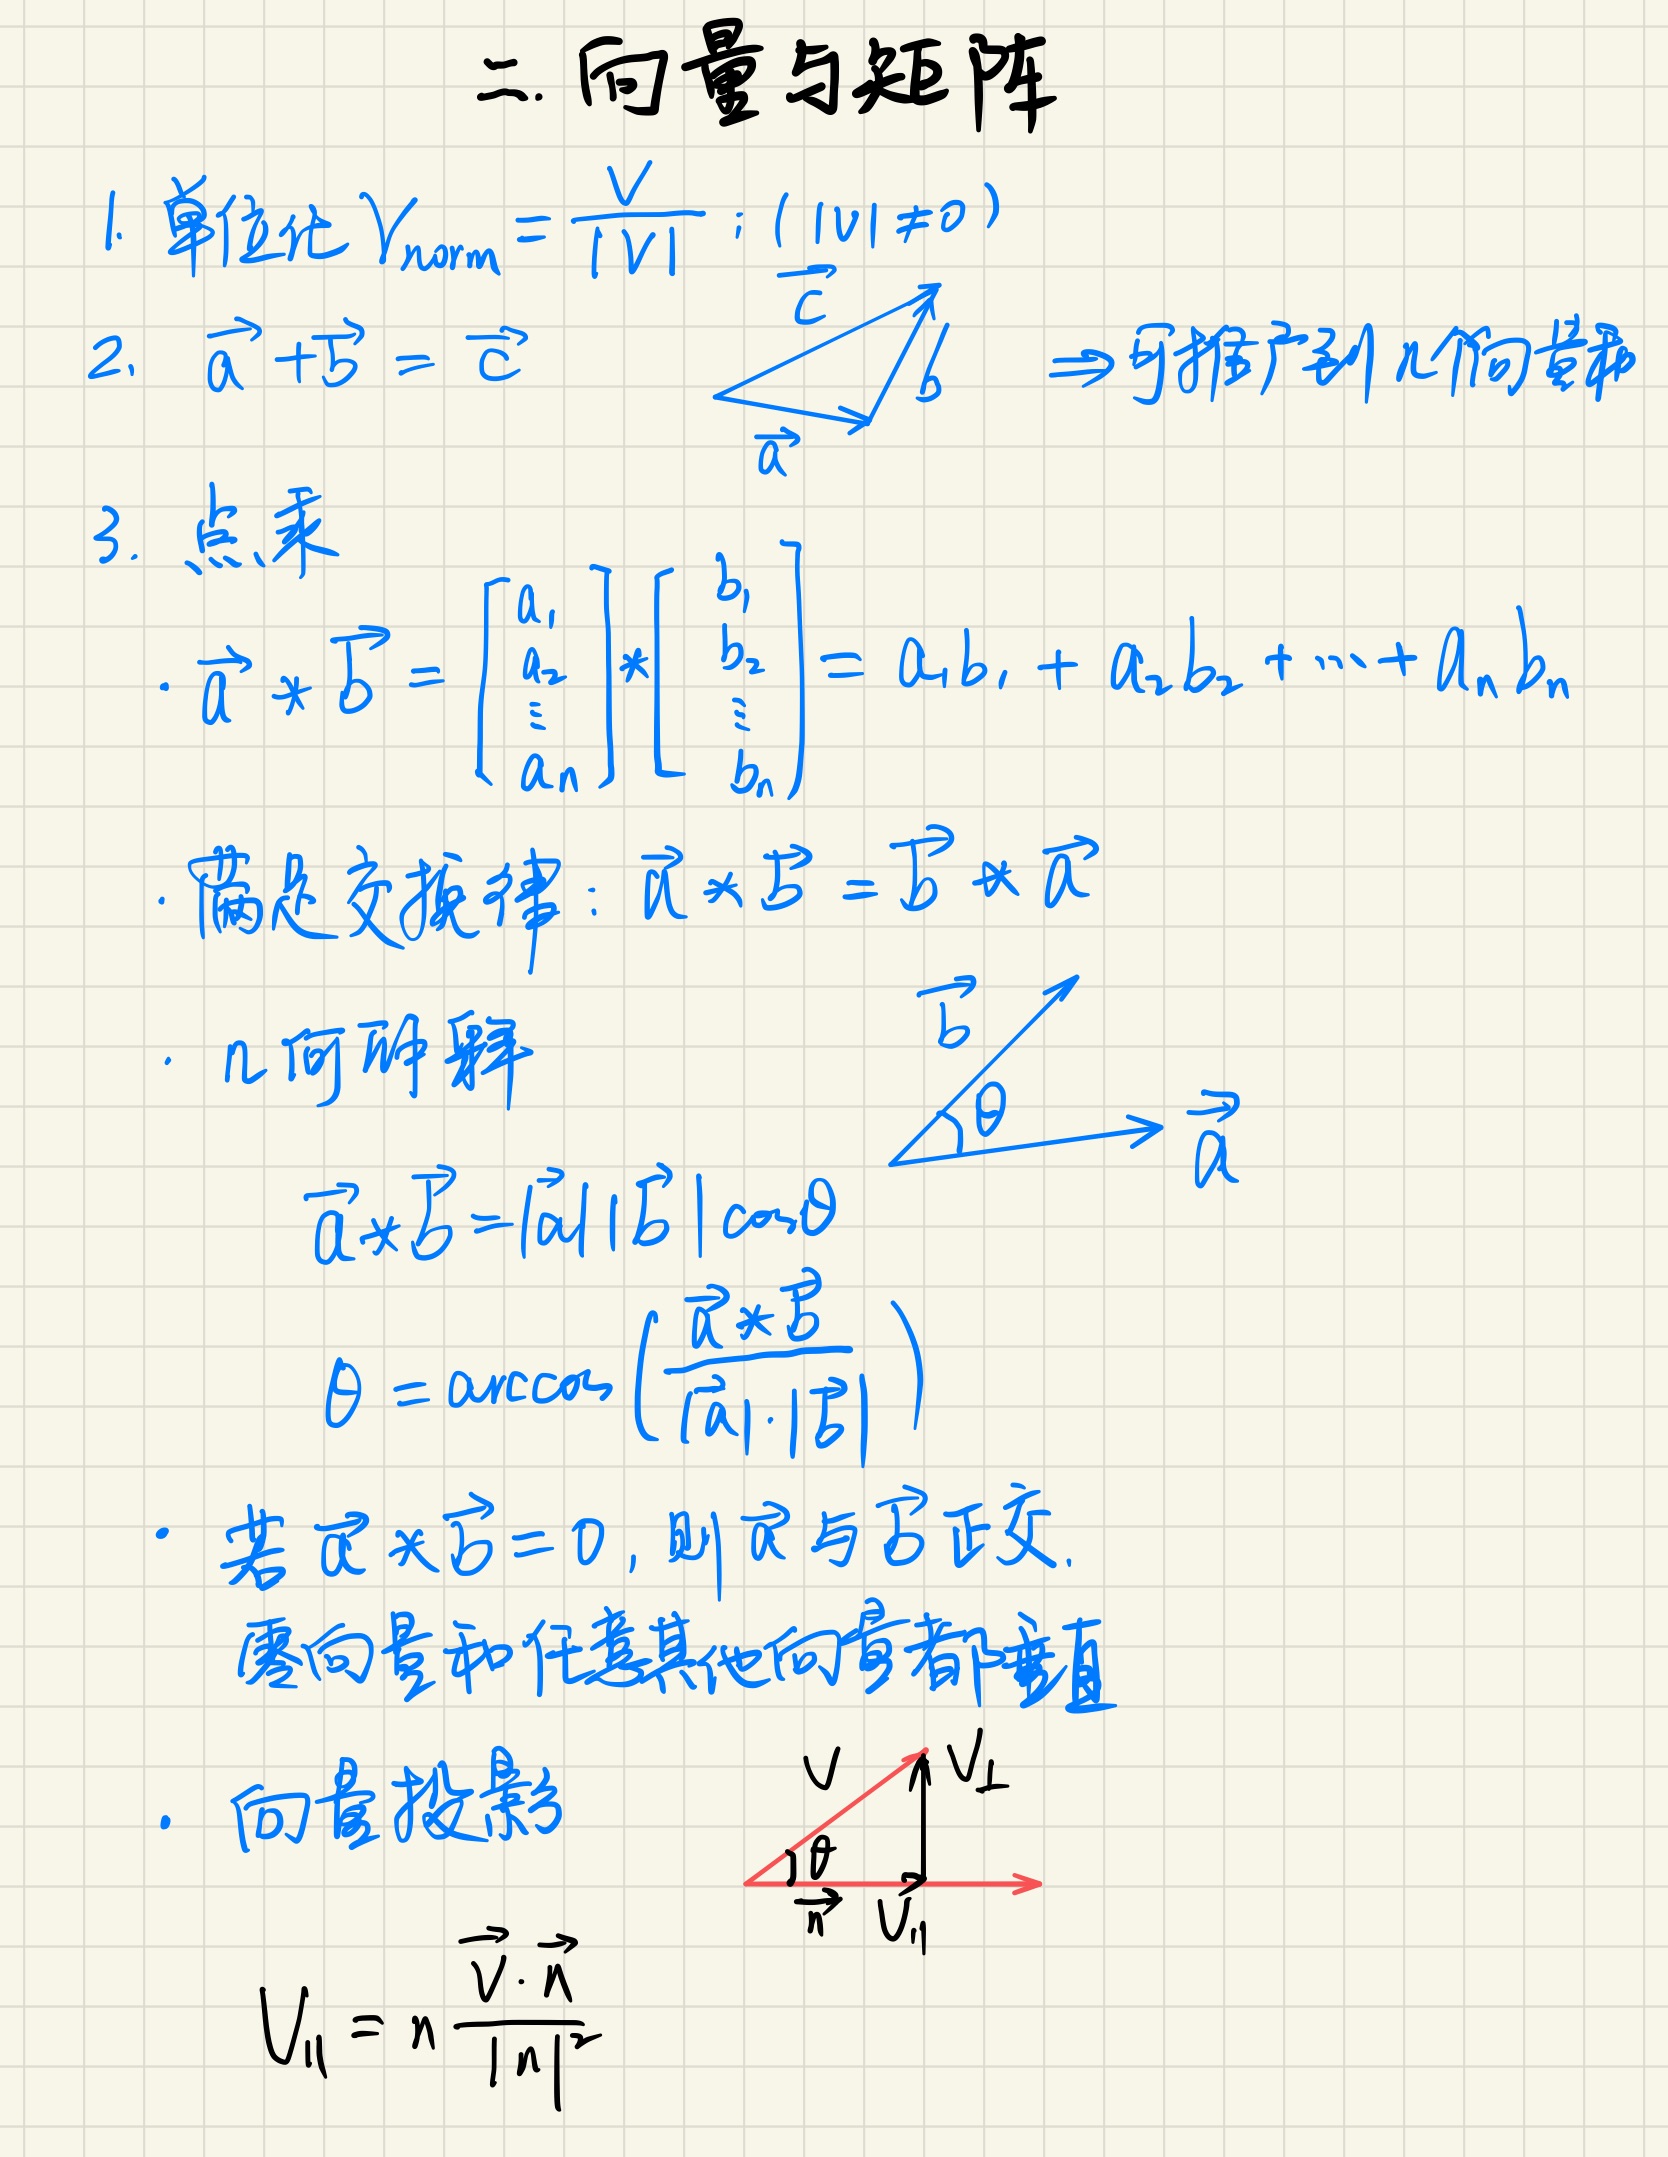 二.向量与矩阵
1. 单位化 V_norm = V / |V| ; (|V| ≠ 0)
2. →a + →b = →c
→c
b
→a
⇒ 可推广到n个向量和
3. 点乘
· →a * →b = [a₁ a₂ ⋮ aₙ] * [b₁ b₂ ⋮ bₙ] = a₁b₁ + a₂b₂ + ⋯ + aₙbₙ
· 满足交换律: →a * →b = →b * →a
· 几何解释
→b
θ
→a
→a * →b = |→a| |→b| cosθ
θ = arccos( →a * →b / |→a|·|→b| )
· 若 →a * →b = 0, 则 →a 与 →b 正交.
零向量和任意其他向量都垂直
· 向量投影
V
V⊥
θ
→n
V∥
V∥ = n →V·→n / |n|²